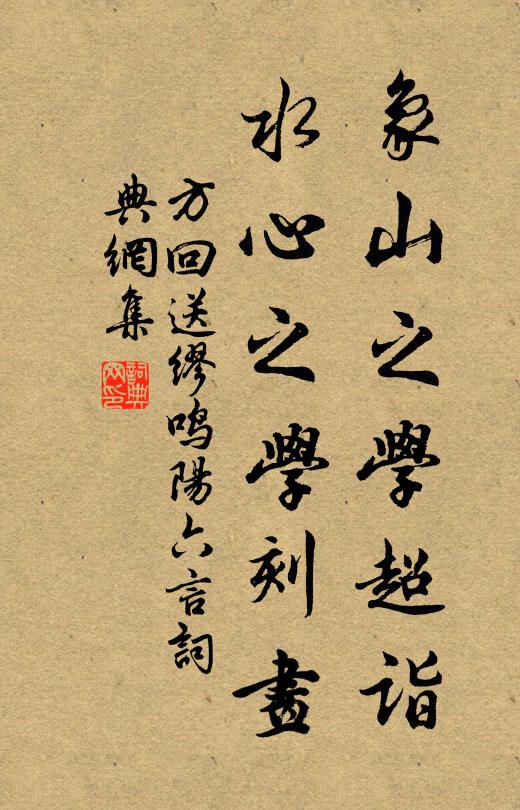 象山之學超詣
水心之學刻畫
方回送繆鳴陽六言詞
典網集
詞典網印